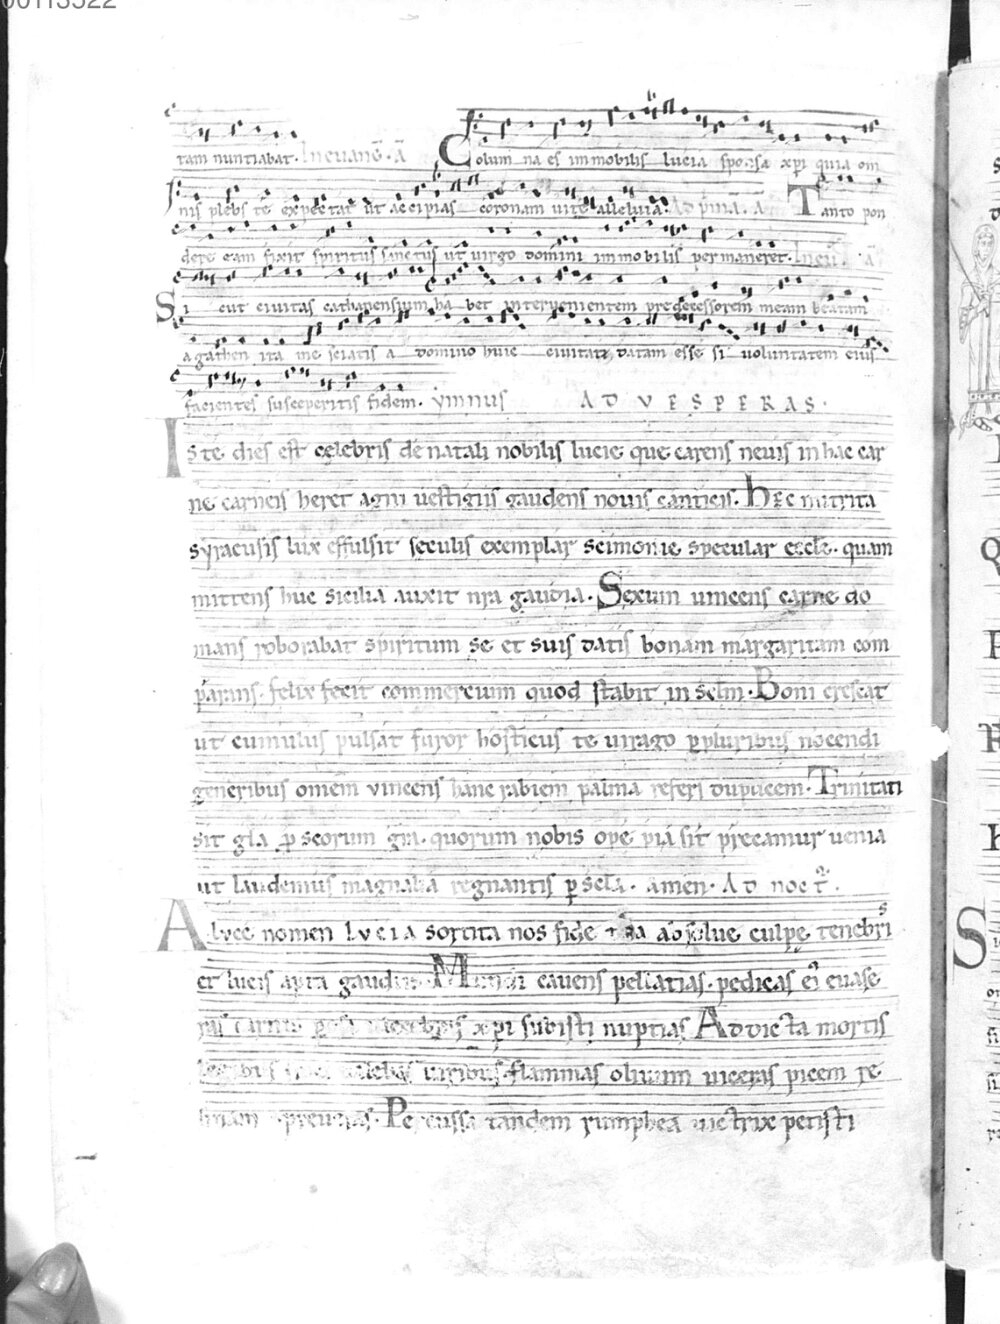 00113522
tam nuntiabat. In evang̅. a̅
Colum na es immobilis lucia sponsa xp̅i quia om
nis plebs te expectat ut accipias coronam vite alleluia. Ad prima. a̅ Tanto pon
dere eam fixit spiritus sanctus ut virgo domini immobilis permaneret. In eu̅ a̅
Si cut civitas cathanensium ha bet intervenientem predecessorem meam beatam
agathen ita me sciatis a domino huic civitati datam esse si voluntatem eius
facientes susceperitis fidem. ymnus AD VESPERAS.
Iste dies est celebris de natali nobilis lucie que carens nevis in hac car
ne carneis heret agni vestigiis gaudens novis canticis. Hec nutrita
syracusis lux effulsit seculis exemplar scimonie specular eccle̅. quam
mittens huc sicilia auxit nr̅a gaudia. Sexum vincens carne do
mans roborabat spiritum se et suis datis bonam margaritam com
parans. felix fecit commercium quod stabit in sc̅lm. Boni crescat
ut cumulus pulsat furor hosticus te virago p̲pluribus nocendi
generibus omnem vincens hanc rabiem palma refers dupplicem. Trinitati
sit gl̅a p̲ sc̅orum gr̅a. quorum nobis ope pia sit precamur venia
ut laudemus magnalia regnantis p̲ sc̅la. amen. AD noct̅.
A luce nomen lucia sortita nos fide tua absolue culpe tenebris
et lucis apta gaudiis. Mundi cavens pellacias. pedicas eius evase
ras carnis xp̅i subisti nuptias Addicta mortis
viribus. flammas olivum viceras picem re
Percussa tandem rumphea victrix petisti